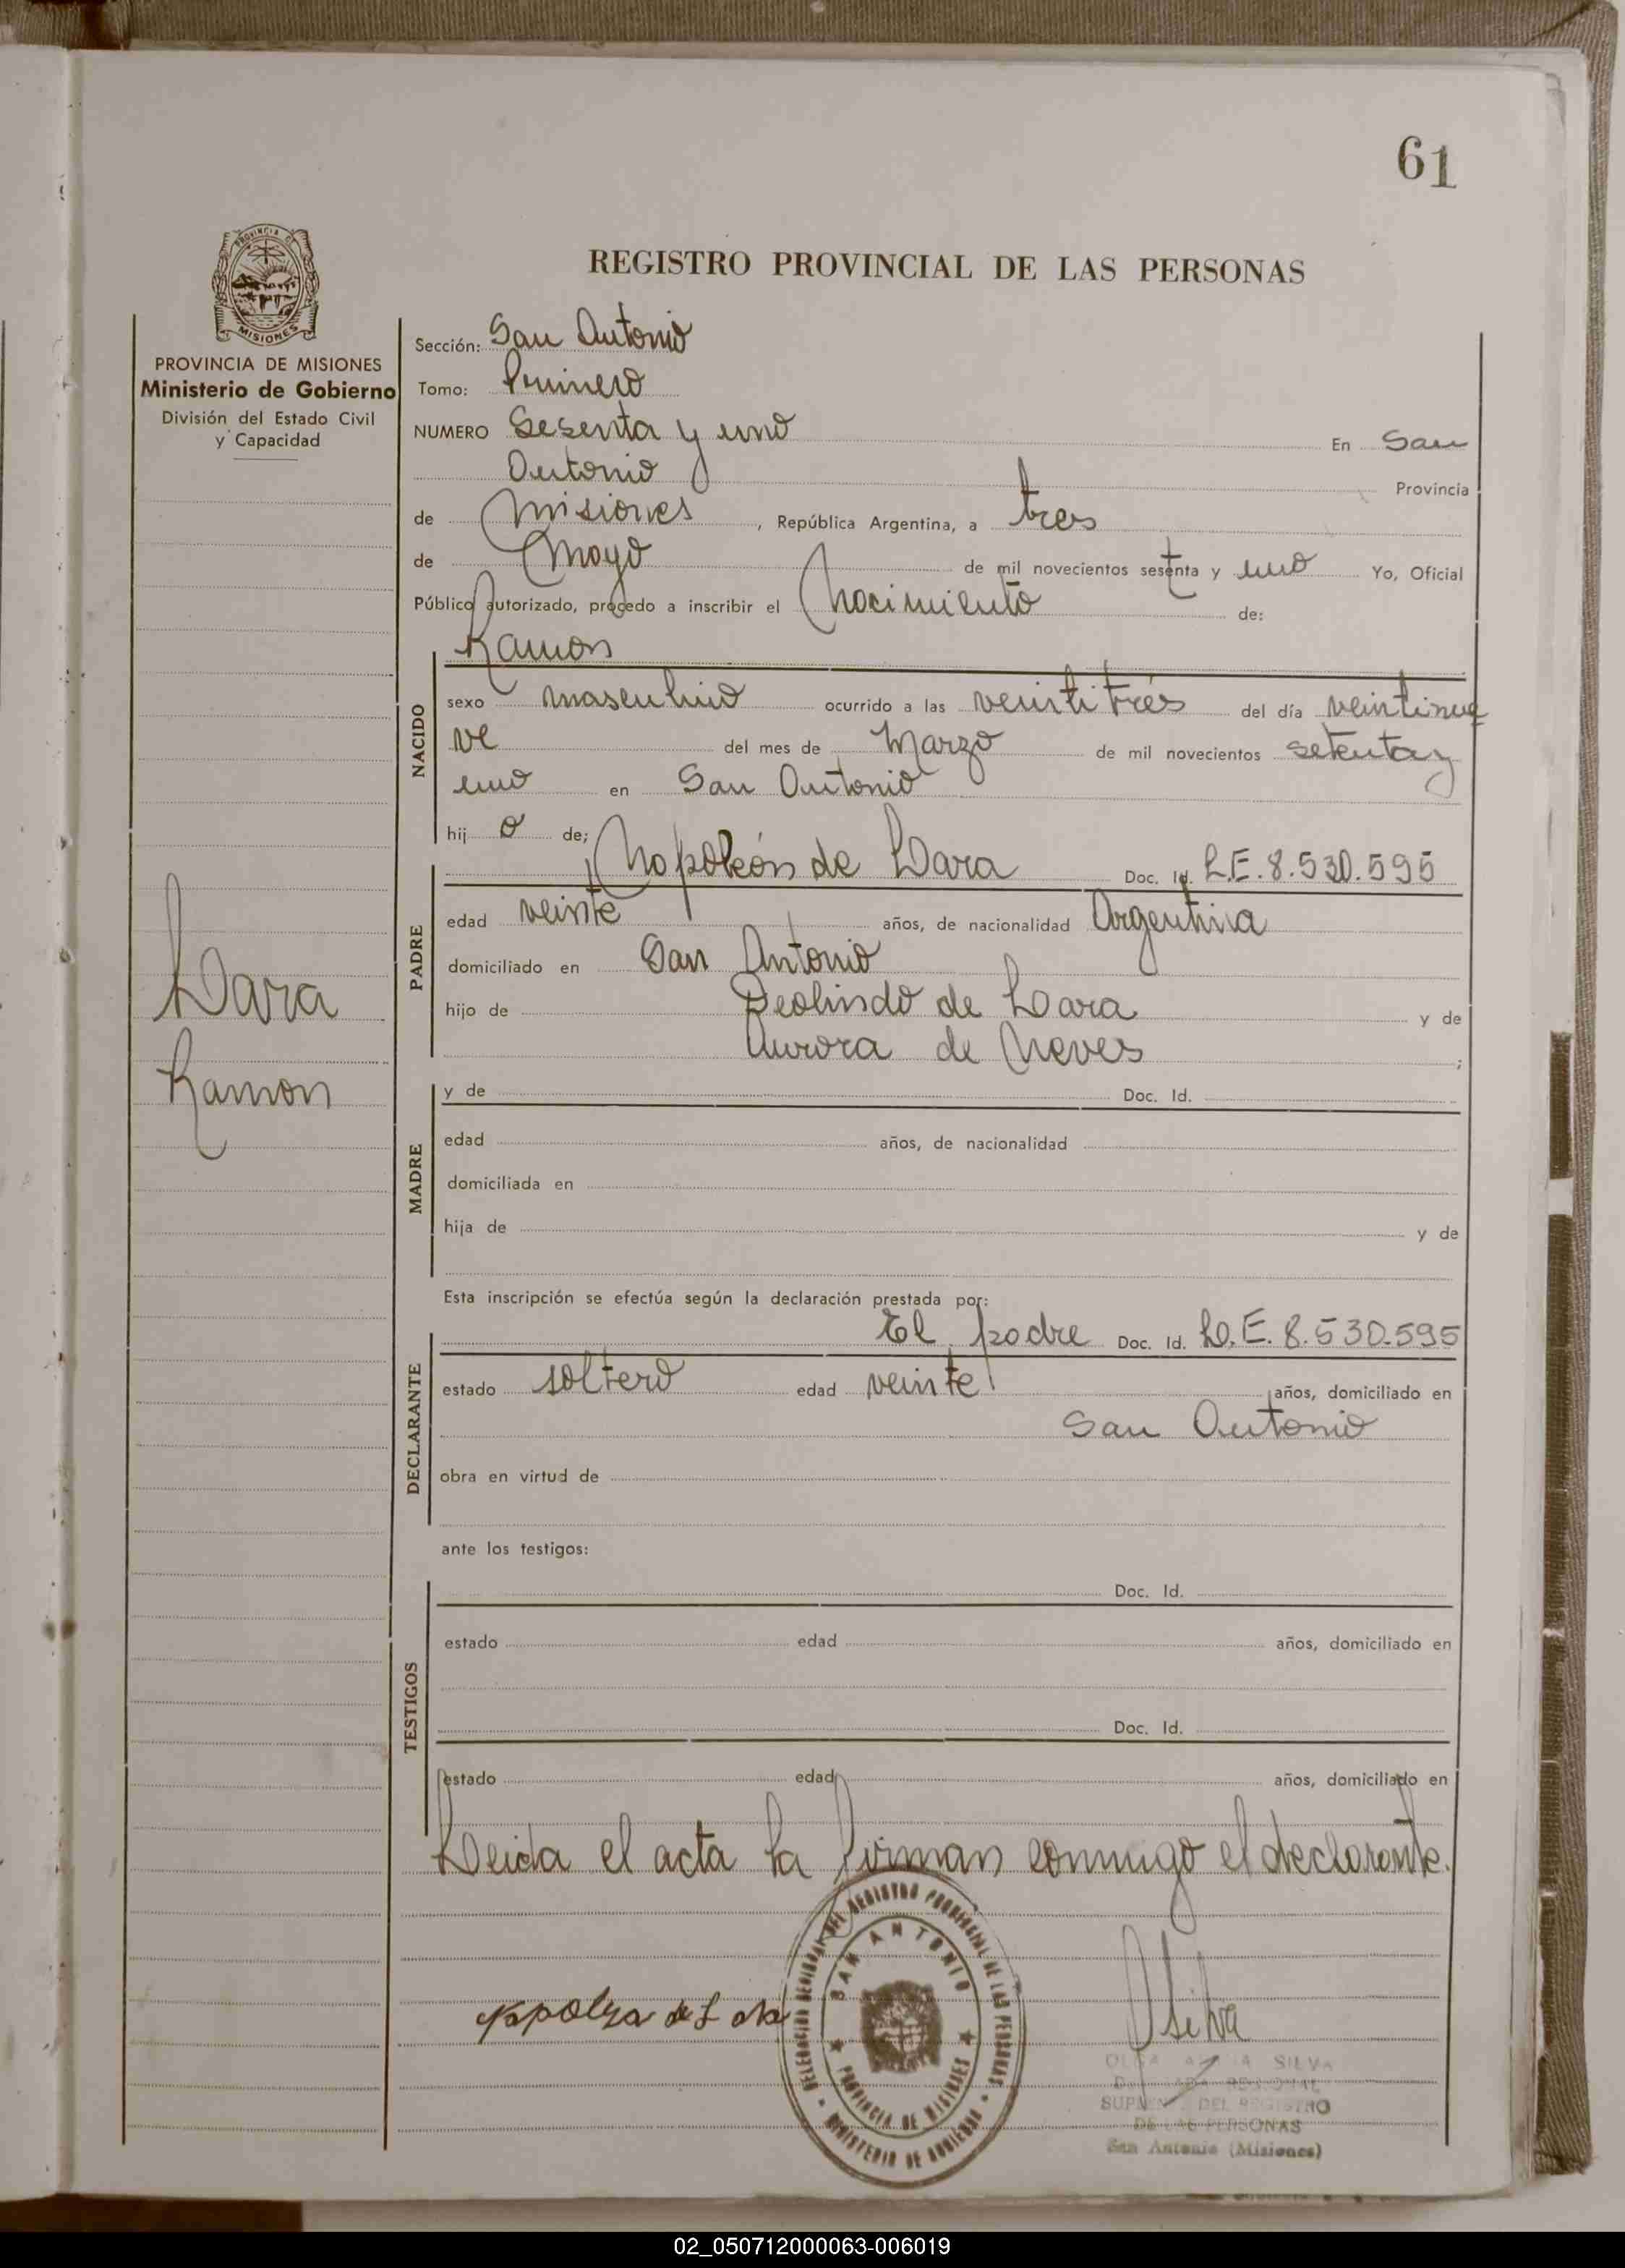 61
REGISTRO PROVINCIAL DE LAS PERSONAS
PROVINCIA DE MISIONES
Ministerio de Gobierno
División del Estado Civil
y Capacidad
Sección: San Antonio
Tomo: Primero
NUMERO Sesenta y uno En San
Antonio Provincia
de Misiones, República Argentina, a tres
de Mayo de mil novecientos sesenta y uno Yo, Oficial
Público autorizado, procedo a inscribir el Nacimiento de:
Ramon
NACIDO
sexo masculino ocurrido a las veintitrés del día veintinue
ve del mes de Marzo de mil novecientos setenta y
uno en San Antonio
hij o de;
Napoleón de Lara Doc. Id. L.E. 8.530.595
PADRE
edad veinte años, de nacionalidad Argentina
domiciliado en San Antonio
hijo de Deolindo de Lara y de
Aurora de Neves ;
Lara
Ramon
MADRE
y de Doc. Id.
edad años, de nacionalidad
domiciliada en
hija de y de
Esta inscripción se efectúa según la declaración prestada por:
El padre Doc. Id. L.E. 8.530.595
DECLARANTE
estado soltero edad veinte años, domiciliado en
San Antonio
obra en virtud de
ante los testigos:
TESTIGOS
Doc. Id.
estado edad años, domiciliado en
Doc. Id.
estado edad años, domiciliado en
Leida el acta la firman conmigo el declarante.
DELEGACION REGIONAL DEL REGISTRO PROVINCIAL DE LAS PERSONAS
SAN ANTONIO
PROVINCIA DE MISIONES
MINISTERIO DE GOBIERNO
Silva
OLGA SILVA
SUPLENTE DEL REGISTRO
DE LAS PERSONAS
San Antonio (Misiones)
02_050712000063-006019